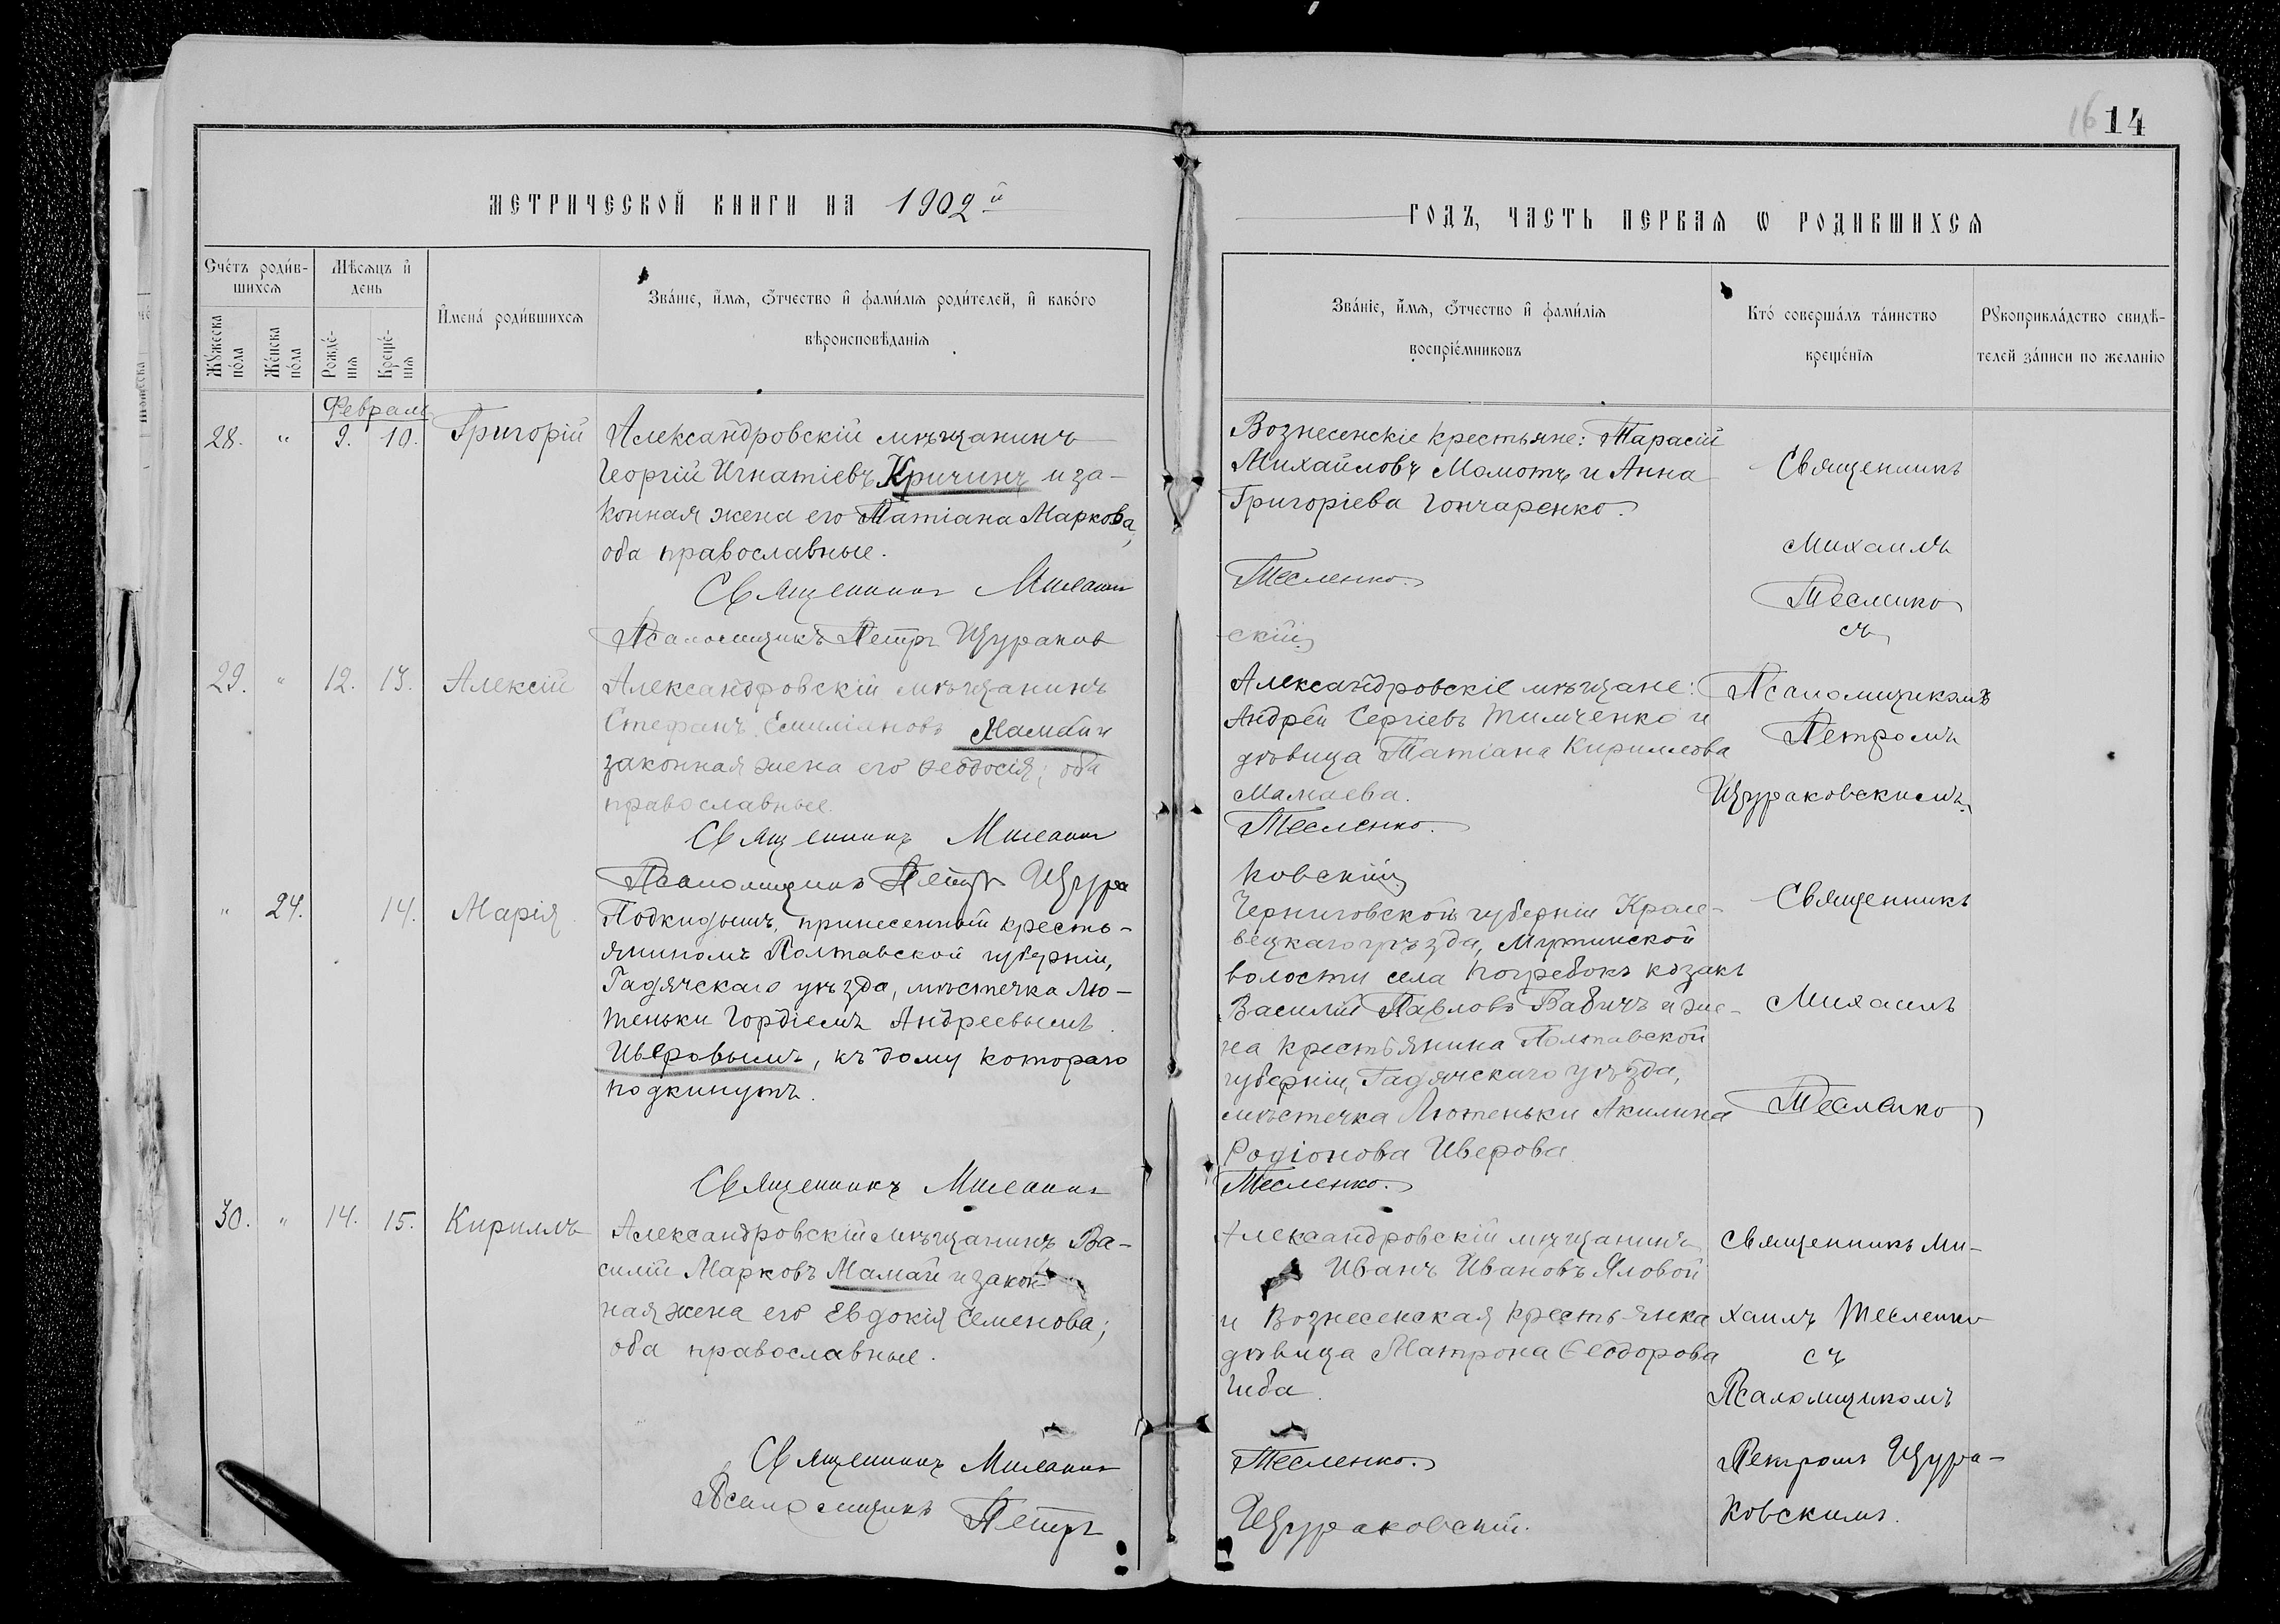 16 14
МЕТРИЧЕСКОЙ КНИГИ НА 1902й
Счетъ родив-
шихся
Мѣсяцъ и
день
Имена родившихся
Званіе, имя, отчество и фамилія родителей, и какого
вѣроисповѣданія
Мужеска
пола
Женска
пола
Рожде-
нія
Креще-
нія
Февраль
28. " 9. 10. Григорій
Александровскій мѣщанинъ
Георгій Игнатіевъ Кричинъ и за-
конная жена его Татіана Маркова,
оба православные.
Священникъ Михаилъ
Псаломщикъ Петръ Щураков
29. " 12. 13. Алексій
Александровскій мѣщанинъ
Стефанъ Емиліановъ Мамай и
законная жена его Ѳеодосія; оба
православные.
Священникъ Михаилъ
Псаломщикъ Петръ Щура
" 24. 14. Марія
Подкидышъ, принесенный кресть-
яниномъ Полтавской губерніи,
Гадячскаго уѣзда, мѣстечка Лю-
теньки Гордіемъ Андреевымъ
Иверовымъ, къ дому котораго
подкинутъ.
Священникъ Михаилъ
30. " 14. 15. Кириллъ
Александровскій мѣщанинъ Ва-
силій Марковъ Мамай и закон-
ная жена его Евдокія Семенова;
оба православные.
Священникъ Михаилъ
Псаломщикъ Петръ
ГОДЪ, ЧАСТЬ ПЕРВАЯ Ѡ РОДИВШИХСЯ
Званіе, имя, отчество и фамилія
воспріемниковъ
Кто совершалъ таинство
крещенія
Рукоприкладство свидѣ-
телей записи по желанію
Вознесенскіе крестьяне: Тарасій
Михайловъ Мамотъ и Анна
Григоріева Гончаренко.
Тесленко.
скій
Священникъ
Михаилъ
Тесленко
съ
Александровскіе мѣщане:
Андрей Сергіевъ Тимченко и
дѣвица Татіана Кириллова
Мамаева.
Тесленко.
ковскій
Псаломщикомъ
Петромъ
Щураковскимъ.
Черниговской губерніи Кроле-
вецкаго уѣзда, Мутинской
волости села Погребокъ козакъ
Василій Павловъ Бабичъ и же-
на крестьянина Полтавской
губерніи, Гадячскаго уѣзда,
мѣстечка Лютеньки Акилина
Родіонова Иверова.
Тесленко.
Священникъ
Михаилъ
Тесленко
Александровскій мѣщанинъ
Иванъ Ивановъ Яловой
и Вознесенская крестьянка
дѣвица Матрона Ѳеодорова
Чеба.
Тесленко.
Щураковскій.
Священникъ Ми-
хаилъ Тесленко
съ
Псаломщикомъ
Петромъ Щура-
ковскимъ.